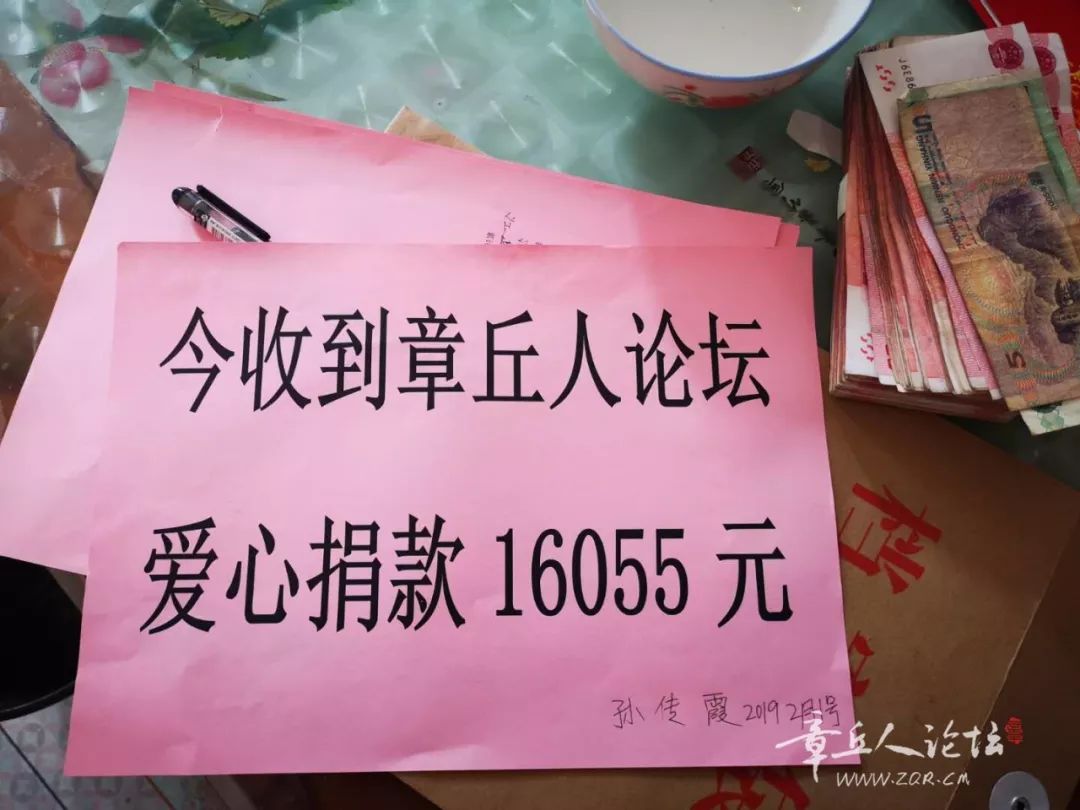 今收到章丘人论坛
爱心捐款 16055 元
孙传霞 2019 2月1号
章丘人论坛
WWW.ZQR.CM
J6E86
5
5
档